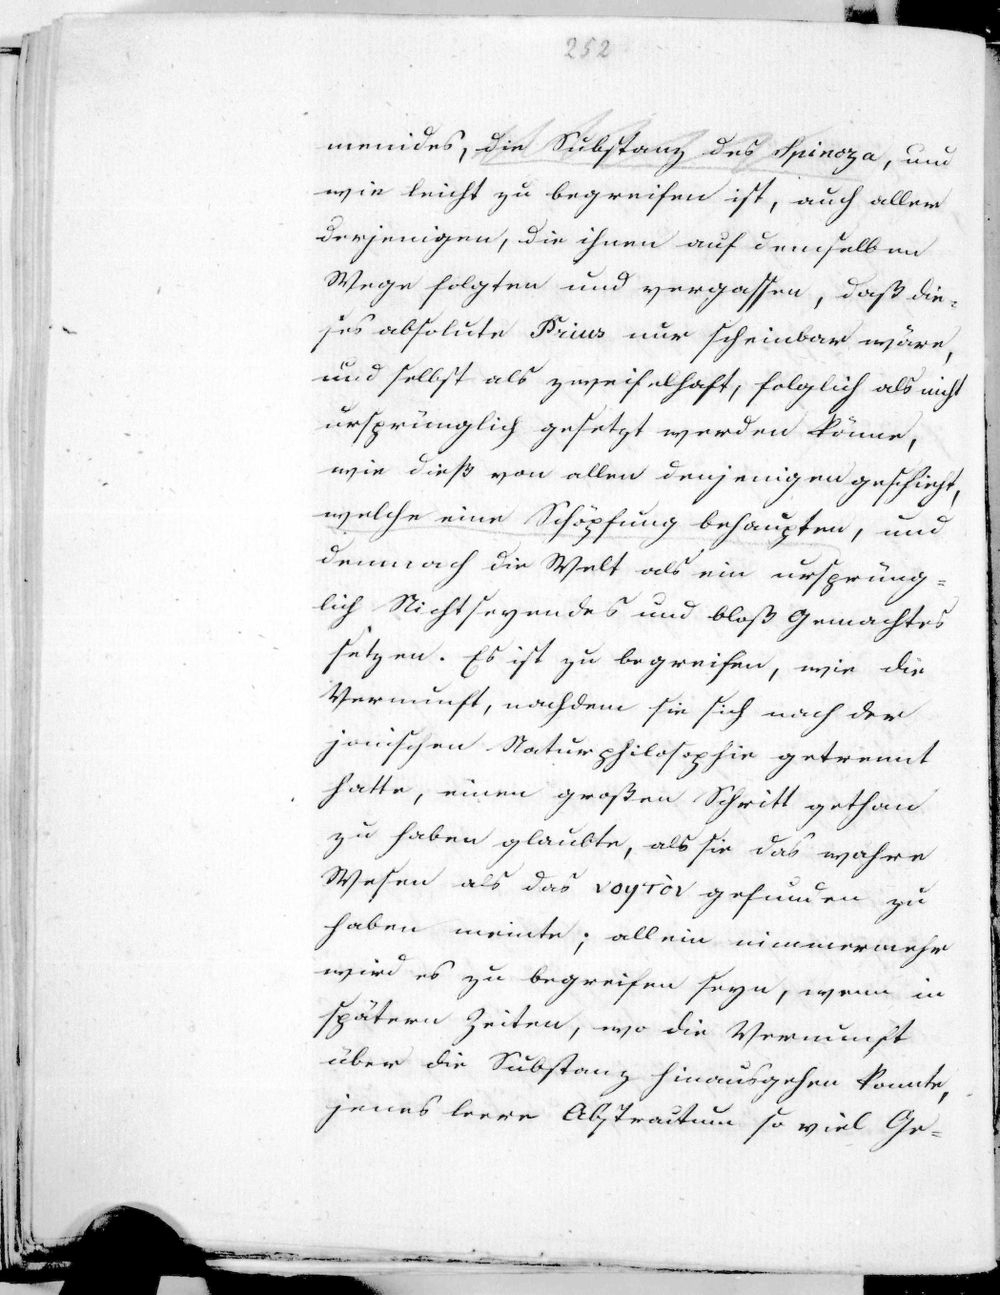 252
menides, die Substanz des Spinoza, und
wie leicht zu begreifen ist, auch aller
derjenigen, die ihnen auf demselben
Wege folgten und vergassen, daß die-
ses absolute Prius nur scheinbar wäre,
und selbst als zweifelhaft, folglich als nicht
ursprünglich gesetzt werden könne,
wie dieß von allen denjenigen geschieht,
welche eine Schöpfung behaupten, und
demnach die Welt als ein ursprüng-
lich Nichtseyendes und bloß Gemachtes
setzen. Es ist zu begreifen, wie die
Vernunft, nachdem sie sich nach der
jonischen Naturphilosophie getrennt
hatte, einen großen Schritt gethan
zu haben glaubte, als sie das wahre
Wesen als das νοητὸν gefunden zu
haben meinte; allein nimmermehr
wird es zu begreifen seyn, wenn in
spätern Zeiten, wo die Vernunft
über die Substanz hinausgehen konnte,
jenes leere Abstractum so viel Ge-